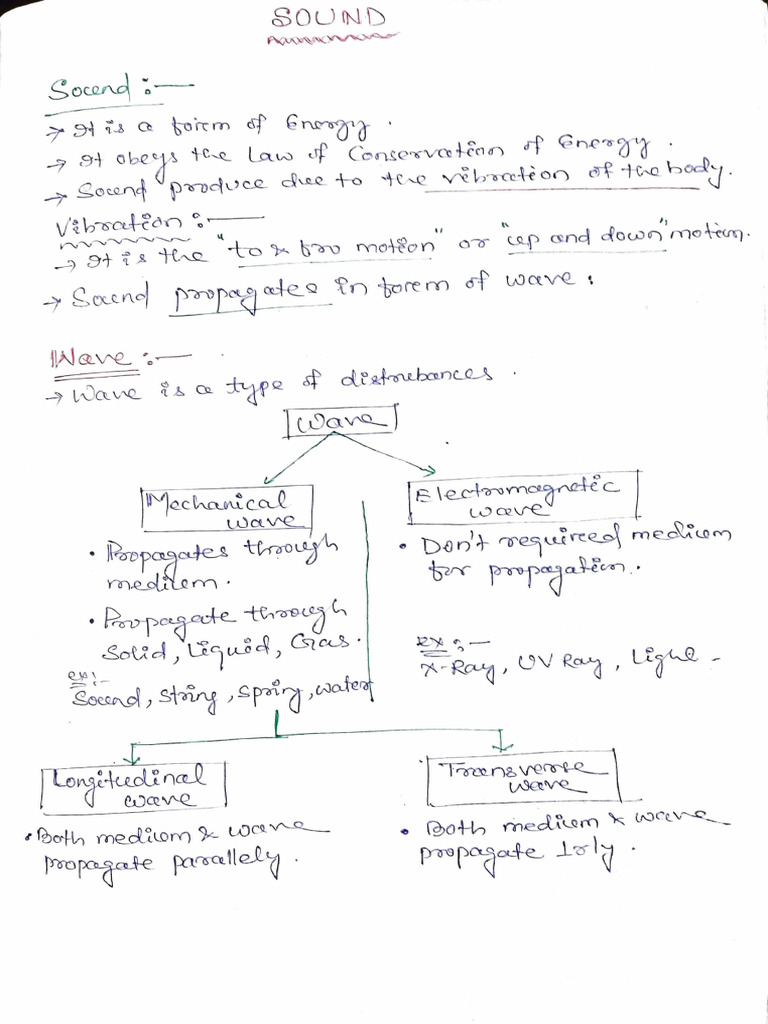 SOUND
Sound :-
→ It is a form of Energy.
→ It obeys the Law of Conservation of Energy.
→ Sound produce due to the vibration of the body.
Vibration :-
→ It is the "to & fro motion" or "up and down" motion.
→ Sound propagates in form of wave.
Wave :-
→ Wave is a type of disturbances.
Wave
Mechanical wave
• Propagates through
medium.
• Propagate through
Solid, Liquid, Gas.
ex:-
Sound, string, spring, water
Electromagnetic
wave
• Don't required medium
for propagation.
ex :-
X-Ray, UV Ray, Light -
Longitudinal
wave
• Both medium & wave
propagate parallely.
Transverse
wave
• Both medium & wave
propagate ⊥rly.